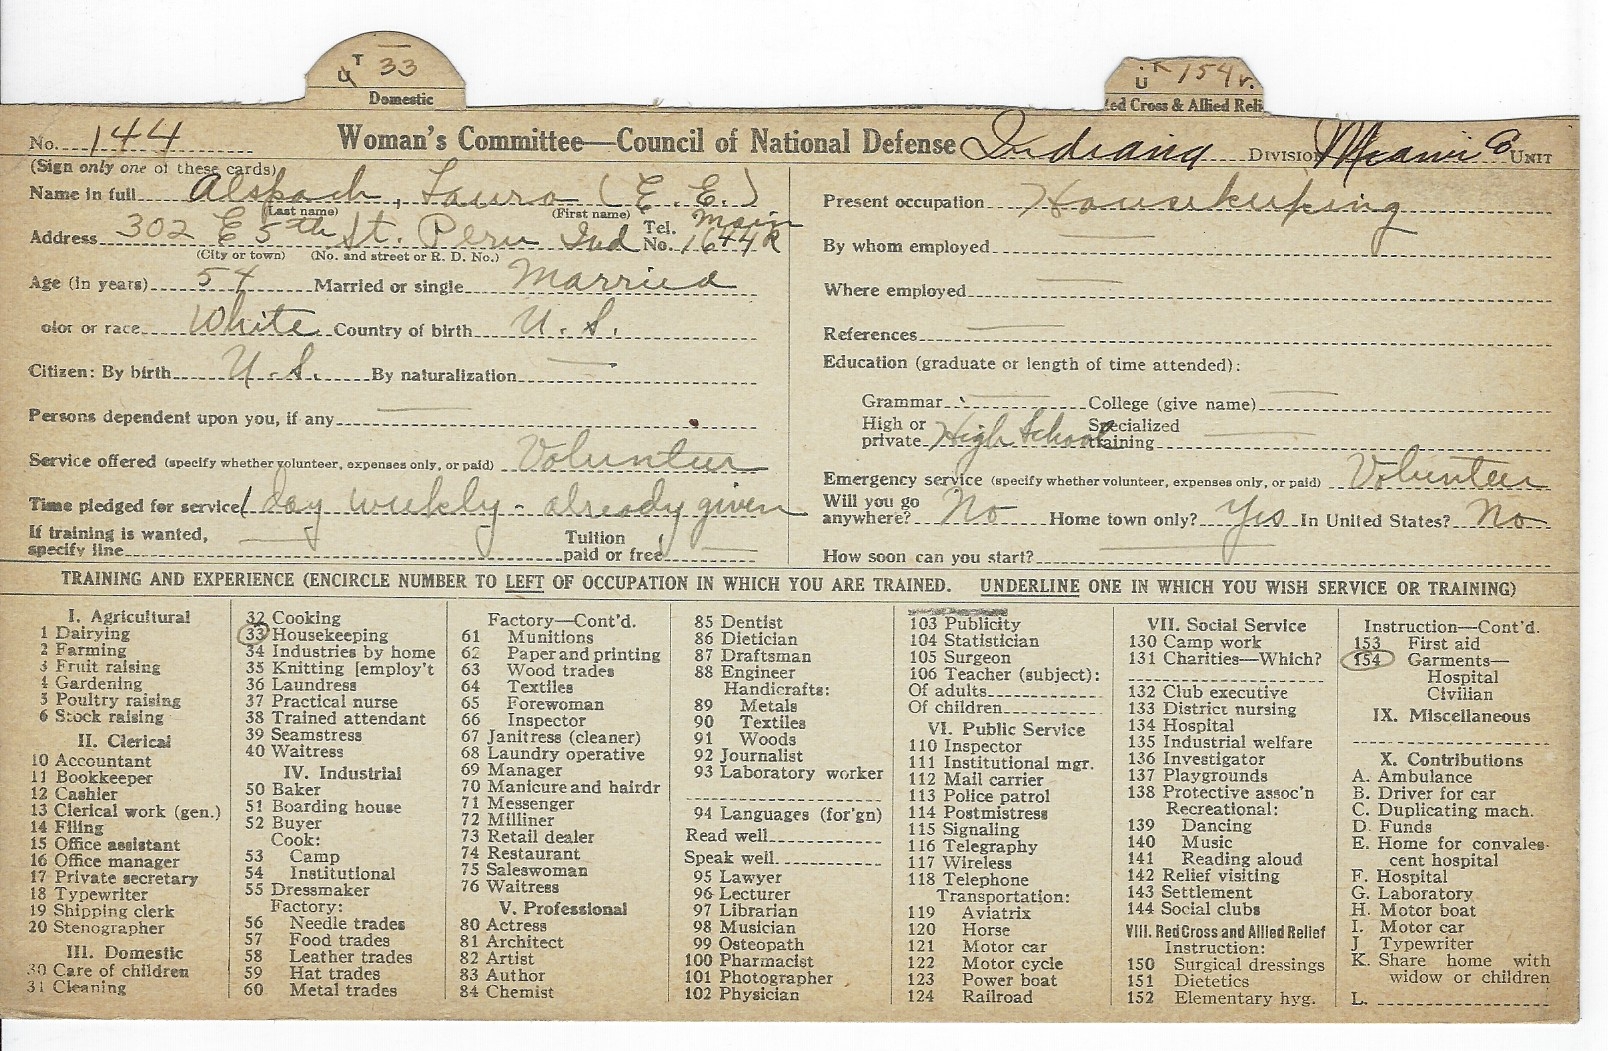 UT 33
Domestic
UR 154 v.
Red Cross & Allied Reli
No. 144 Woman's Committee—Council of National Defense Indiana DIVISION Miami Co UNIT
(Sign only one of these cards)
Name in full Alspach, Laura (E. E.)
(Last name) (First name)
Address 302 E 5th St. Peru Ind Tel. No. Main 1644R
(City or town) (No. and street or R. D. No.)
Age (in years) 54 Married or single Married
olor or race White Country of birth U. S.
Citizen: By birth U. S. By naturalization —
Persons dependent upon you, if any —
Service offered (specify whether volunteer, expenses only, or paid) Volunteer
Time pledged for service 1 day weekly - already given
If training is wanted, specify line — Tuition paid or free —
Present occupation Housekeeping
By whom employed —
Where employed —
References —
Education (graduate or length of time attended):
Grammar — College (give name) —
High or private High School Specialized training —
Emergency service (specify whether volunteer, expenses only, or paid) Volunteer
Will you go anywhere? No Home town only? Yes In United States? No
How soon can you start? —
TRAINING AND EXPERIENCE (ENCIRCLE NUMBER TO LEFT OF OCCUPATION IN WHICH YOU ARE TRAINED. UNDERLINE ONE IN WHICH YOU WISH SERVICE OR TRAINING)
I. Agricultural
1 Dairying
2 Farming
3 Fruit raising
4 Gardening
5 Poultry raising
6 Stock raising
II. Clerical
10 Accountant
11 Bookkeeper
12 Cashier
13 Clerical work (gen.)
14 Filing
15 Office assistant
16 Office manager
17 Private secretary
18 Typewriter
19 Shipping clerk
20 Stenographer
III. Domestic
30 Care of children
31 Cleaning
32 Cooking
33 Housekeeping
34 Industries by home
35 Knitting [employ't
36 Laundress
37 Practical nurse
38 Trained attendant
39 Seamstress
40 Waitress
IV. Industrial
50 Baker
51 Boarding house
52 Buyer
Cook:
53 Camp
54 Institutional
55 Dressmaker
Factory:
56 Needle trades
57 Food trades
58 Leather trades
59 Hat trades
60 Metal trades
Factory—Cont'd.
61 Munitions
62 Paper and printing
63 Wood trades
64 Textiles
65 Forewoman
66 Inspector
67 Janitress (cleaner)
68 Laundry operative
69 Manager
70 Manicure and hairdr
71 Messenger
72 Milliner
73 Retail dealer
74 Restaurant
75 Saleswoman
76 Waitress
V. Professional
80 Actress
81 Architect
82 Artist
83 Author
84 Chemist
85 Dentist
86 Dietician
87 Draftsman
88 Engineer
Handicrafts:
89 Metals
90 Textiles
91 Woods
92 Journalist
93 Laboratory worker
94 Languages (for'gn)
Read well
Speak well
95 Lawyer
96 Lecturer
97 Librarian
98 Musician
99 Osteopath
100 Pharmacist
101 Photographer
102 Physician
103 Publicity
104 Statistician
105 Surgeon
106 Teacher (subject):
Of adults
Of children
VI. Public Service
110 Inspector
111 Institutional mgr.
112 Mail carrier
113 Police patrol
114 Postmistress
115 Signaling
116 Telegraphy
117 Wireless
118 Telephone
Transportation:
119 Aviatrix
120 Horse
121 Motor car
122 Motor cycle
123 Power boat
124 Railroad
VII. Social Service
130 Camp work
131 Charities—Which?
132 Club executive
133 District nursing
134 Hospital
135 Industrial welfare
136 Investigator
137 Playgrounds
138 Protective assoc'n
Recreational:
139 Dancing
140 Music
141 Reading aloud
142 Relief visiting
143 Settlement
144 Social clubs
VIII. Red Cross and Allied Relief
Instruction:
150 Surgical dressings
151 Dietetics
152 Elementary hyg.
Instruction—Cont'd.
153 First aid
154 Garments—
Hospital
Civilian
IX. Miscellaneous
X. Contributions
A. Ambulance
B. Driver for car
C. Duplicating mach.
D. Funds
E. Home for convales-
cent hospital
F. Hospital
G. Laboratory
H. Motor boat
I. Motor car
J Typewriter
K. Share home with
widow or children
L.